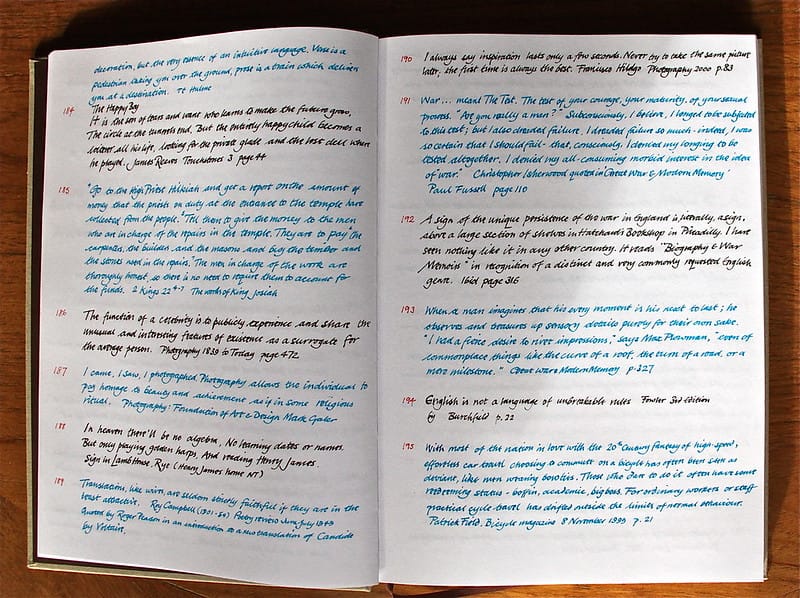 decoration, but the very essence of an intuitive language. Verse is a
pedestrian taking you over the ground, prose is a train which delivers
you at a destination. TE Hulme
184 The Happy Boy
It is the son of tears and want who learns to make the future grow,
The circle at the tunnel's end. But the entirely happy child becomes a
loiterer all his life, looking for the private glade and the lost dell where
he played. James Reeves Touchstones 3 page 44
185 "Go to the High Priest Hilkiah and get a report on the amount of
money that the priests on duty at the entrance to the temple have
collected from the people. "Tell them to give the money to the men
who are in charge of the repairs in the temple. They are to pay "the
carpenters, the builders, and the masons and buy the timber and
the stones used in the repairs. "The men in charge of the work are
thoroughly honest, so there is no need to require them to account for
the funds. 2 Kings 22 4-7 The words of King Josiah
186 The function of a celebrity is to publicly experience and share the
unusual and interesting features of existence as a surrogate for
the average person. Photography 1839 to Today page 472
187 I came, I saw, I photographed. Photography allows the individual to
pay homage to beauty and achievement as if in some religious
ritual. Photography: Foundation of Art & Design Mark Galer
188 In heaven there'll be no algebra, No learning dates or names.
But only playing golden harps, And reading Henry James.
Sign in Lamb House, Rye (Henry James home NT)
189 Translations, like wives, are seldom strictly faithful if they are in the
least attractive. Roy Campbell (1901-57) Poetry review June/July 1949
quoted by Roger Pearson in an introduction to a new translation of Candide
by Voltaire.
190 I always say inspiration lasts only a few seconds. Never try to take the same picture
later, the first time is always the best. Francisco Hidalgo Photography 2000 p.83
191 War... meant The Test. The test of your courage, your maturity, of your sexual
prowess. "Are you really a man?" Subconsciously, I believe, I longed to be subjected
to this test; but I also dreaded failure. I dreaded failure so much - indeed, I was
so certain that I should fail - that, consciously, I denied my longing to be
tested altogether. I denied my all-consuming morbid interest in the idea
of war." Christopher Isherwood quoted in 'Great War & Modern Memory'
Paul Fussell page 110
192 A sign of the unique persistence of the war in England is, literally, a sign,
above a large section of shelves in Hatchard's Bookshop in Piccadilly. I have
seen nothing like it in any other country. It reads "Biography & War
Memoirs" in recognition of a distinct and very commonly requested English
genre. Ibid page 316
193 When a man imagines that his every moment is his next to last; he
observes and treasures up sensory details purely for their own sake.
"I had a fierce desire to rivet impressions," says Max Plowman, "even of
commonplace things like the curve of a roof, the turn of a road, or a
mere milestone." Great War & Modern Memory p.327
194 English is not a language of unbreakable rules Fowler 3rd edition
by Burchfield p.22
195 With most of the nation in love with the 20th Century fantasy of high-speed,
effortless car travel choosing to commute on a bicycle has often been seen as
deviant, like men wearing bonnets. Those who dare to do it often have some
redeeming status - boffin, academic, big boss. For ordinary workers or staff
practical cycle-travel has drifted outside the limits of normal behaviour.
Patrick Field, Bicycle magazine 8 November 1999 p.21